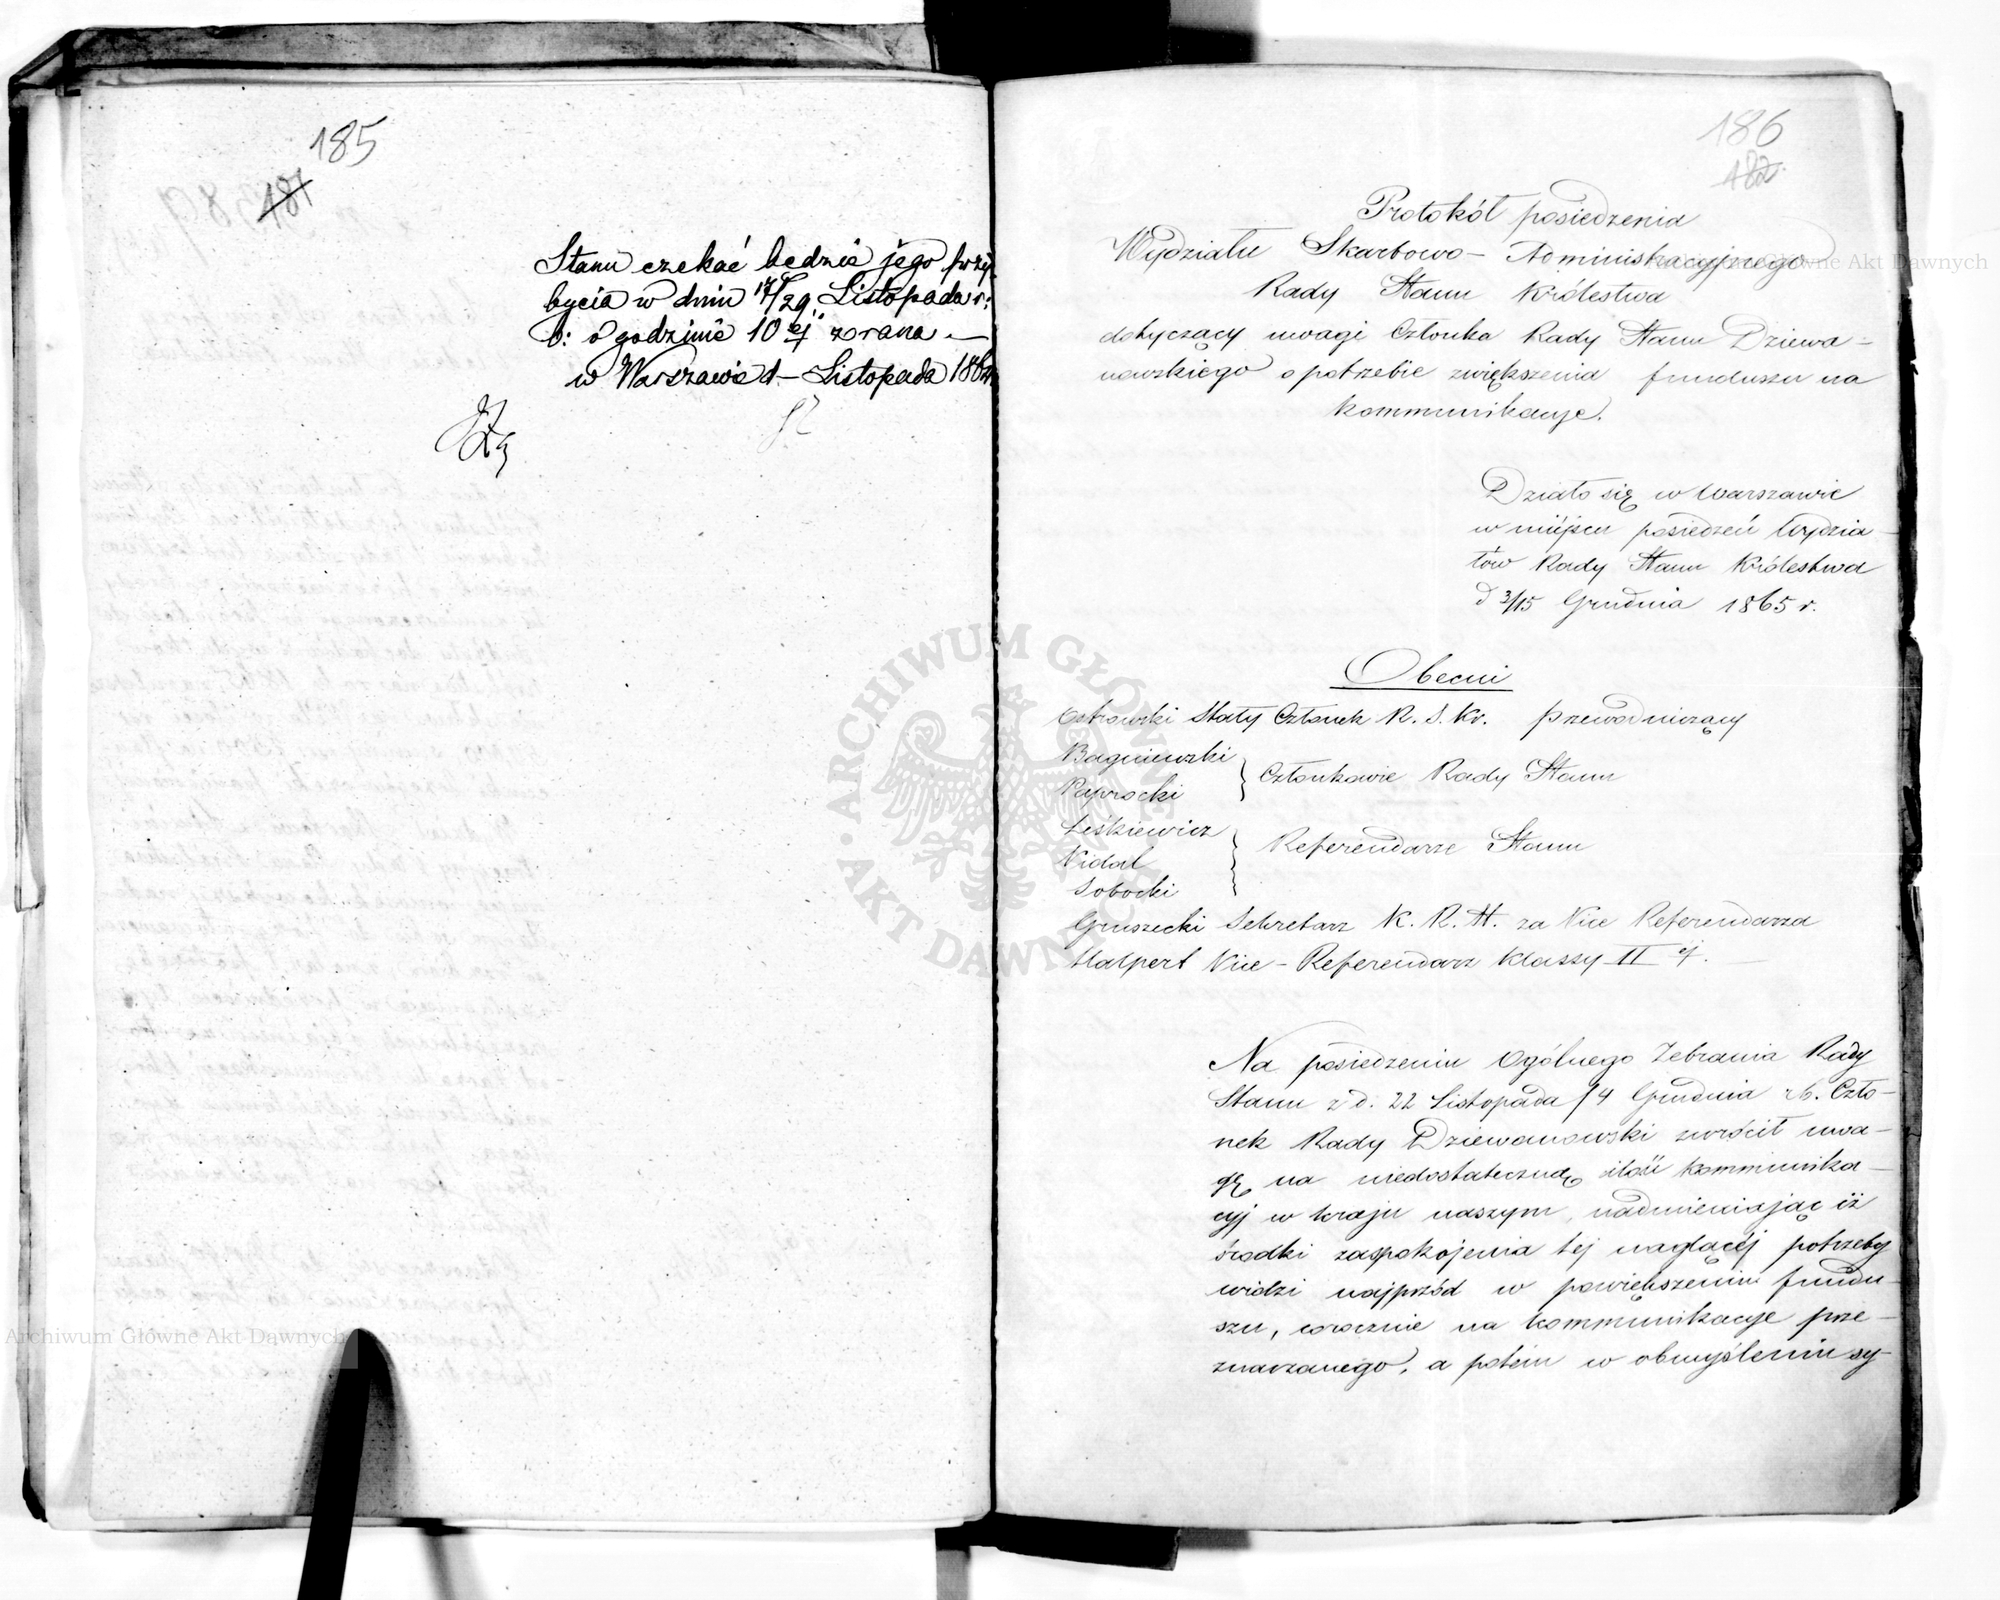 185
187
Stanu czekać będzie jego przy
bycia w dniu 17/29 Listopada r:
b: o godzinie 10ej zrana. —
w Warszawie d — Listopada 186
186
182
Protokół posiedzenia
Wydziału Skarbowo - Administracyjnego
Rady Stanu Królestwa
dotyczący uwagi Członka Rady Stanu Dziewa-
nowskiego o potrzebie zwiększenia funduszu na
kommunikacye.
Działo się w Warszawie
w miejscu posiedzeń Wydzia-
łów Rady Stanu Królestwa
d 3/15 Grudnia 1865 r.
Obecni
Ostrowski Stały Członek R. S. Kr. przewodniczący
Bagniewski
Paprocki
} Członkowie Rady Stanu
Leśkiewicz
Vidal
Sobocki
} Referendarze Stanu
Gruszecki Sekretarz K. R. St. za Vice Referendarza
Halpert Vice - Referendarz klassy II ej. —
Na posiedzeniu Ogólnego Zebrania Rady
Stanu z d. 22 Listopada / 4 Grudnia r b. Czło-
nek Rady Dziewanowski zwrócił uwa-
gę na niedostateczną ilość kommunika-
cyj w kraju naszym, nadmieniając iż
środki zaspokojenia tej naglącéj potrzeby
widzi najprzód w powiększeniu fundu-
szu, corocznie na kommunikacye prze-
znaczanego, a potém w obmyśleniu sy-
ARCHIWUM GŁÓWNE AKT DAWNYCH
Archiwum Główne Akt Dawnych
Archiwum Główne Akt Dawnych